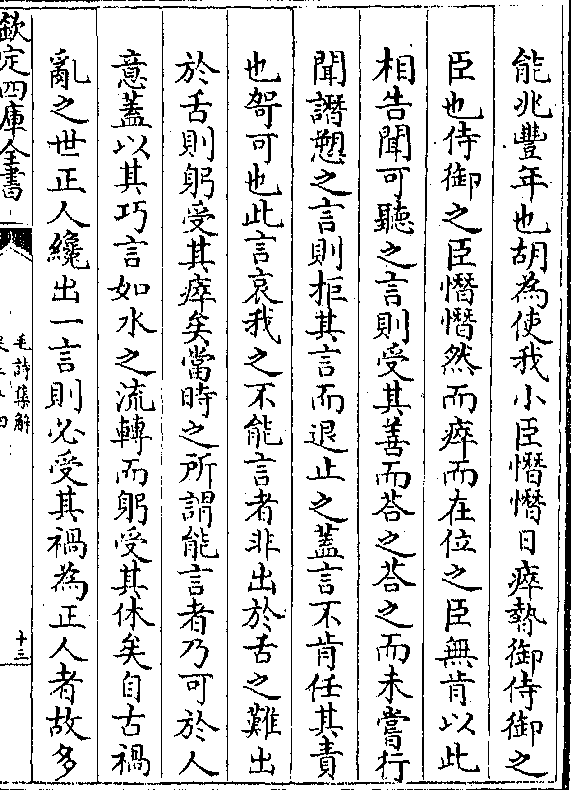 能兆豐年也胡為使我小臣憯憯日瘁暬御侍御之
臣也侍御之臣憯憯然而瘁而在位之臣無肯以此
相告聞可聽之言則受其善而荅之荅之而未嘗行
聞譖愬之言則拒其言而退止之蓋言不肯任其責
也哿可也此言哀我之不能言者非出於舌之難出
於舌則躬受其瘁矣當時之所謂能言者乃可於人
意蓋以其巧言如水之流轉而躬受其休矣自古禍
亂之世正人纔出一言則必受其禍為正人者故多
欽定四庫全書
毛詩集解
十三